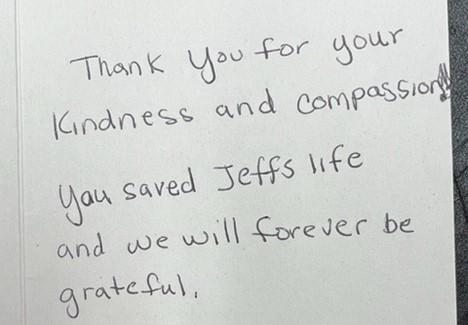 Thank you for your
Kindness and compassion!!
You saved Jeffs life
and we will forever be
grateful.